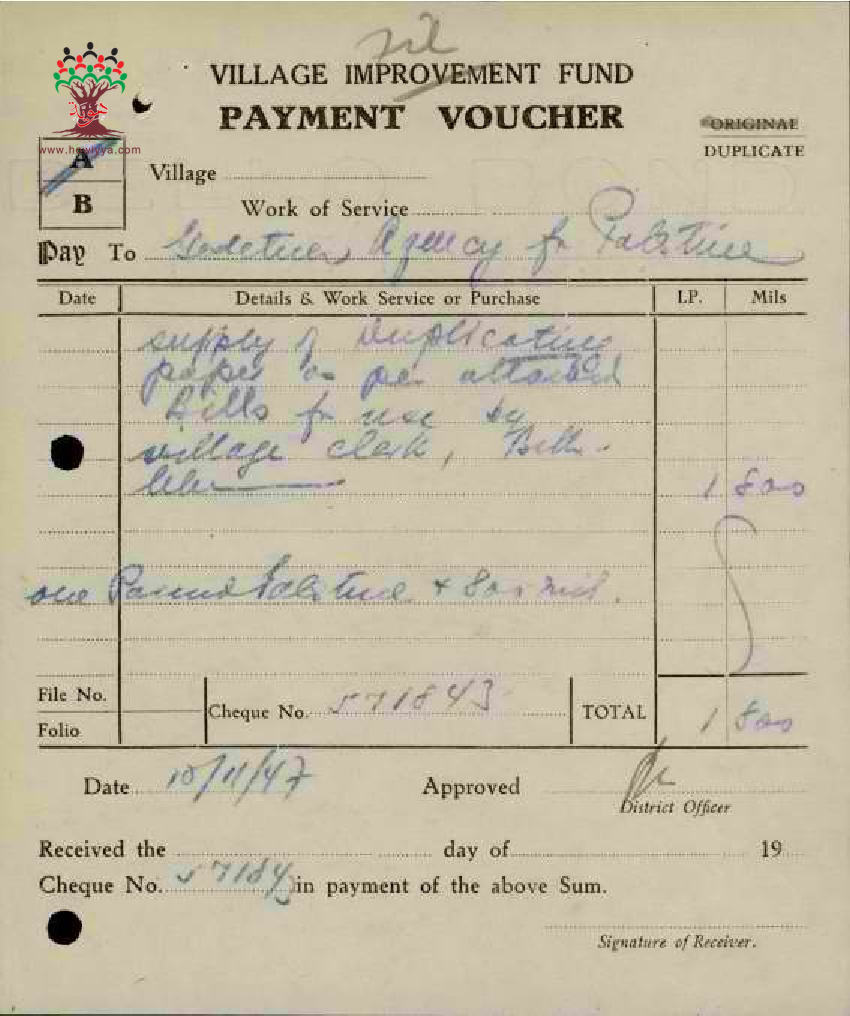 VILLAGE IMPROVEMENT FUND
PAYMENT VOUCHER
ORIGINAL
DUPLICATE
www.howiyya.com
A
B
Village
Work of Service
Pay To Agency for Palestine
Date Details & Work Service or Purchase LP. Mils
supply of Duplicating
paper as per attached
bills for use by
village clerk, Beth-
lehem 1 800
one Pound Palestine & 800 mils.
File No.
Folio
Cheque No. 571843
TOTAL 1 800
Date 10/11/47 Approved
District Officer
Received the day of 19
Cheque No. 571843 in payment of the above Sum.
Signature of Receiver.